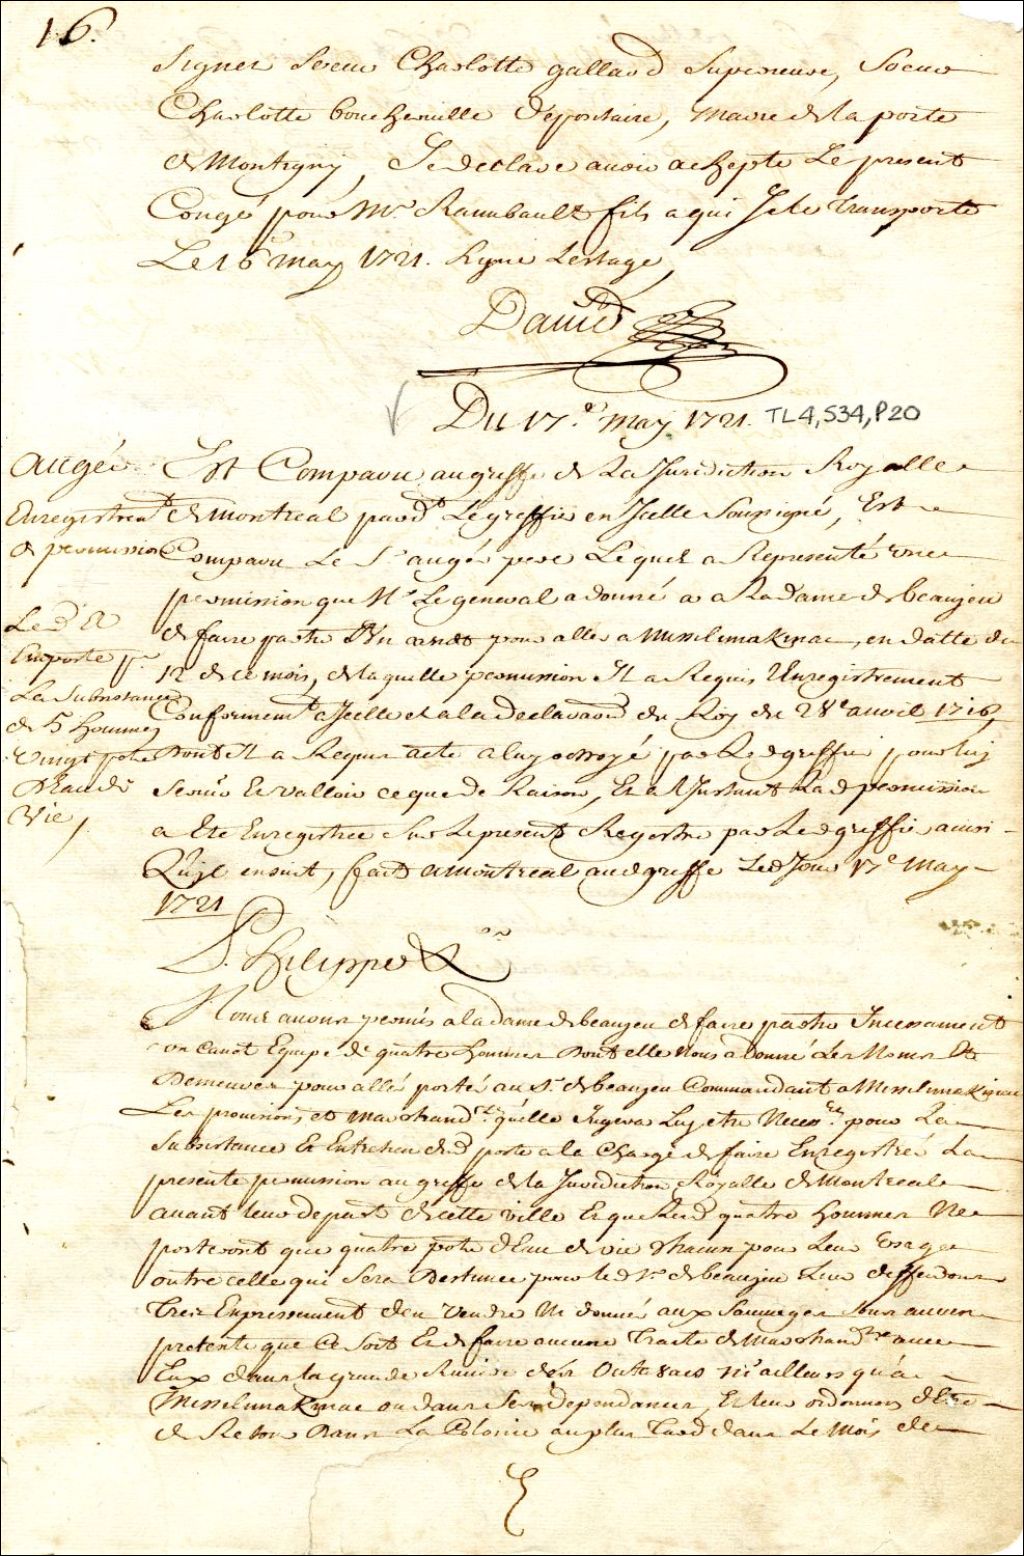 16.
Signer Soeur Charlotte gallard Superieure, Soeur
Charlotte boucherville Depositaire, Marie de la porte
de Montigny, Je declare avoir achepté Le present
Congé pour Mr. Raimbault fils a qui Je le transporte
Le 16 may 1721. Signé Lestage
David
Du 17.e may 1721. TL4,S34,P20
Augér
Enregistremt
de permission
Led. Sr
Emporte pr
La Subsistance
de 5 hommes
vingt pots
D'Eau de
Vie
Est Comparu au greffe de La Jurisdiction Royalle
de montreal pard.t Le greffier en Icelle Soussigné, Est
Comparu Le Sr augér pere Lequel a Representé une
permission que Mr Le general a donné a Madame de beaujeu
de faire partir Un canot pour aller a Missilimakinac, en datte du
12 de ce mois, de laquelle permission Il a Requis Enregistrement
Conformemt a Icelle et a la declaraon du Roy du 28e avril 1716,
Dont Il a Requis acte a luy octroyé par Led greffier pour luy
Servir Et valloir ce que de Raison, Et a l'Instant Lad permission
a Eté Enregistrée Sur Le present Registre par Led greffier ainsi
Qu'il ensuit, fait a Montreal aud greffe Led Jour 17e May
1721
Nous avons permis a la dame de beaujeu de faire partir Incessament
un Canot Equipé de quatre hommes Dont elle Nous a donné Les Noms Et
Demeures pour allér porté au Sr. de beaujeu Commandant a Missilimakinac
Les provisions, et Marchand.ses qu'elle Jugera Luy etre Necess.res pour La
Subsistance Et Entretien dud poste a la Charge de faire Enregistrér La
presente permission au greffe de la Jurisdiction Royalle de Montreal
avant leur depart de cette ville Et que Lesd quatre hommes Ne
porteront que quatre pots d'Eau de vie Chacun pour Leur Usage
outre celle qui Sera Destinée pour led Sr. de beaujeu Leur deffendons
tres Expressement d'en vendre Ni donner aux Sauvages Sous aucun
pretexte que Ce Soit Et de faire aucune traite de Marchand.ses avec
Eux dans la grande Riviere des Outa8acs Ni ailleurs qu'a
Missilimakinac ou dans Ses dependances, Et leur ordonnons d'Etre
de Retour Dans La Colonie au plus tard dans Le Mois de